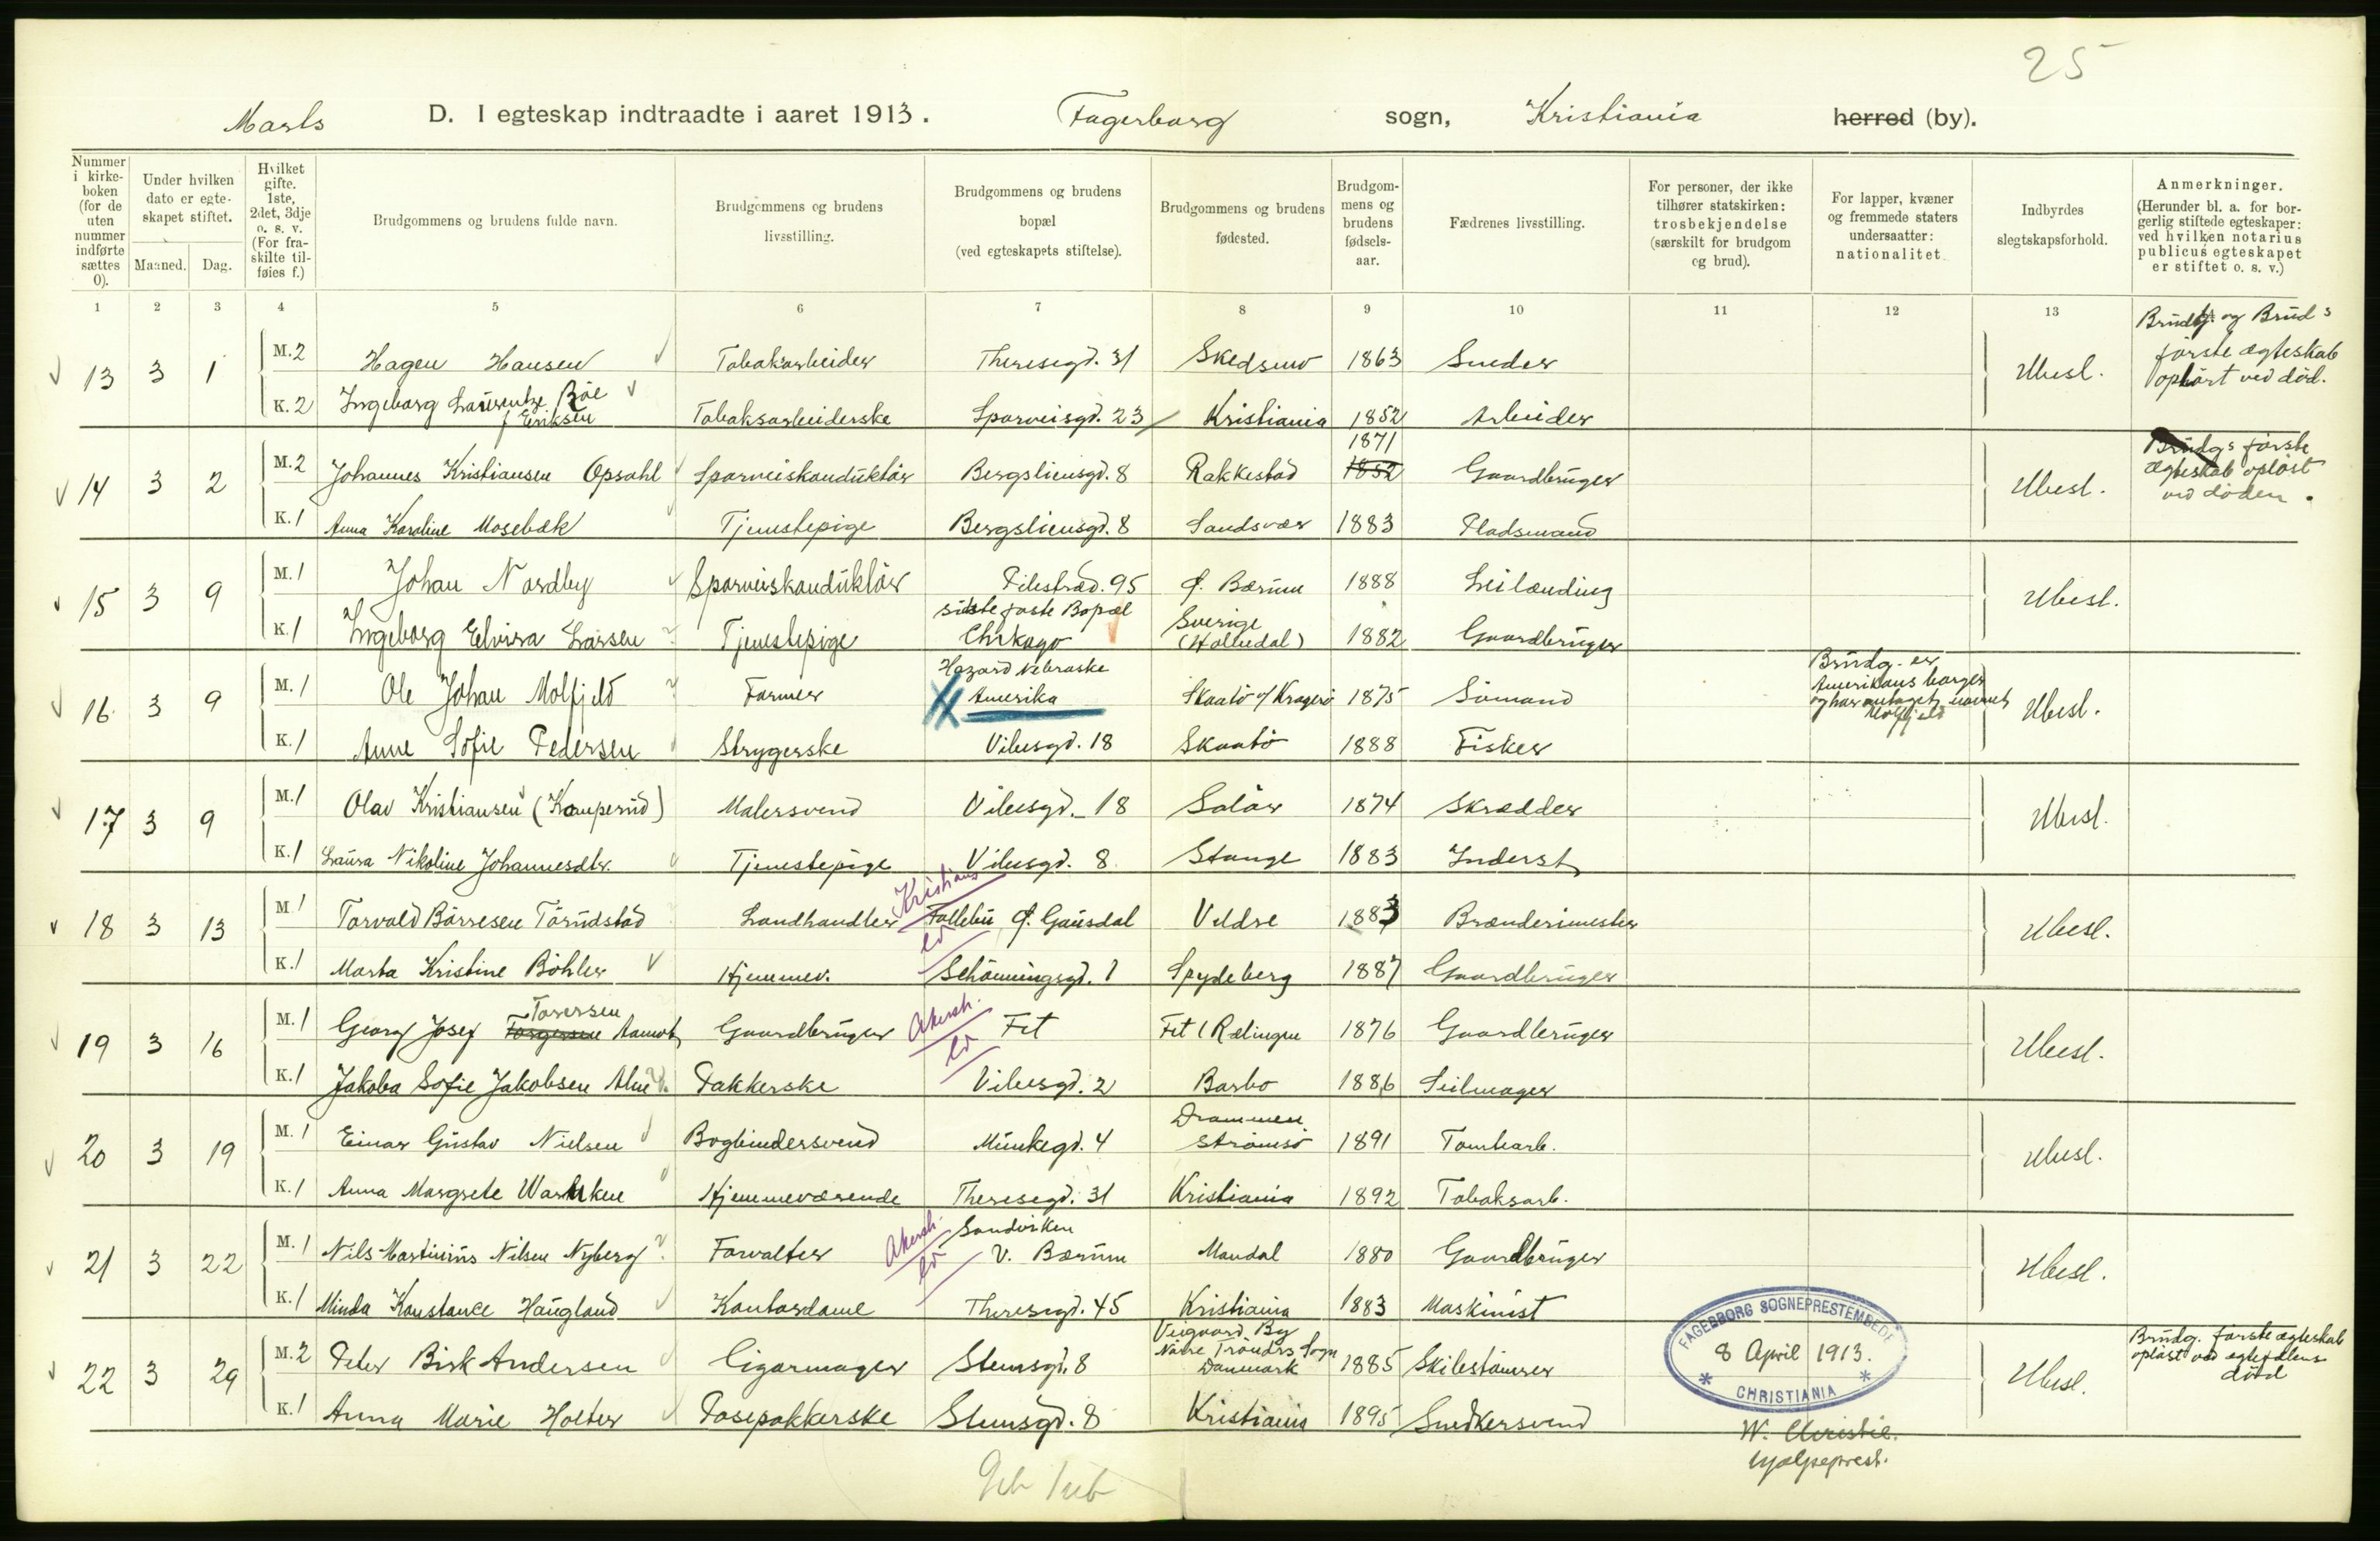 25
Marts D. I egteskap indtraadte i aaret 1913. Fagerborg sogn, Kristiania herred (by).
Nummer i kirkeboken (for de uten nummer indførte sættes 0).
Under hvilken dato er egteskapet stiftet.
Maaned. Dag.
Hvilket gifte. 1ste, 2det, 3dje o. s. v. (For fraskilte tilføies f.)
Brudgommens og brudens fulde navn.
Brudgommens og brudens livsstilling.
Brudgommens og brudens bopæl (ved egteskapets stiftelse).
Brudgommens og brudens fødested.
Brudgommens og brudens fødselsaar.
Fædrenes livsstilling.
For personer, der ikke tilhører statskirken: trosbekjendelse (særskilt for brudgom og brud).
For lapper, kvæner og fremmede staters undersaatter: nationalitet
Indbyrdes slegtskapsforhold.
Anmerkninger. (Herunder bl. a. for borgerlig stiftede egteskaper: ved hvilken notarius publicus egteskapet er stiftet o. s. v.)
1 2 3 4 5 6 7 8 9 10 11 12 13
13 3 1 M. 2 Hagen Hansen Tobaksarbeider Theresegd. 31 Skedsmo 1863 Smeder Ubesl. Brudg. og Bruds første ægteskab ophørt ved død.
K. 2 Ingeborg Laurentze Bøe f. Eriksen Tobaksarbeiderske Sporveisgd. 23 Kristiania 1852 Arbeider
14 3 2 M. 2 Johannes Kristiansen Opsahl Sporveiskonduktør Bergsliensgd. 8 Rakkestad 1871 1852 Gaardbruger Ubesl. Brudgs første ægteskab opløst ved døden.
K. 1 Anna Karoline Mosebæk Tjenestepige Bergsliensgd. 8 Sandsvær 1883 Pladsmand
15 3 9 M. 1 Johan Nordby Sporveiskonduktør Pilestræd. 95 Ø. Bærum 1888 Leilænding Ubesl.
K. 1 Ingeborg Elvira Larsen Tjenestepige sidste faste Bopæl Chikago Sverige (Holledal) 1882 Gaardbruger
16 3 9 M. 1 Ole Johan Molfjeld Farmer Hazard Nebraska Amerika Skaatø v/ Kragerø 1875 Sømand Brudg. er Amerikans borger og har antaget navnet Molfjeld Ubesl.
K. 1 Anne Sofie Pedersen Strygerske Vibesgd. 18 Skaatø 1888 Fisker
17 3 9 M. 1 Olav Kristiansen (Kamperud) Malersvend Vibesgd. 18 Solør 1874 Skrædder Ubesl.
K. 1 Laura Nikoline Johannesdtr. Tjenestepige Vibesgd. 8 Stange 1883 Inderst
18 3 13 M. 1 Torvald Børresen Tørudstad Landhandler Kristians Follebu Ø. Gausdal Veldre 1883 Brænderimester Ubesl.
K. 1 Marta Kristine Bøhler Hjemmev. Schønningsgd. 1 Spydeberg 1887 Gaardbruger
19 3 16 M. 1 Georg Josef Torgersen Torersen Aamot Gaardbruger Akersh. Fet Fet (Rælingen 1876 Gaardbruger Ubesl.
K. 1 Jakoba Sofie Jakobsen Alne Pakkerske Vibesgd. 2 Barbo 1886 Seilmager
20 3 19 M. 1 Einar Gustav Nielsen Bogbindersvend Munkegd. 4 Drammen Strømsø 1891 Tomtearb. Ubesl.
K. 1 Anna Margrete Warnken Hjemmeværende Theresegd. 31 Kristiania 1892 Tobaksarb.
21 3 22 M. 1 Nils Martinius Nilsen Nyberg Forvalter Akersh. Sandviken V. Bærum Mandal 1880 Gaardbruger Ubesl.
K. 1 Minda Konstance Haugland Kontordame Theresegd. 45 Kristiania 1883 Maskinist
22 3 29 M. 2 Peter Birk Andersen Cigarmager Stensgd. 8 Veigaard By Nøhre Trønders Sogn Danmark 1885 Ubesl. Brudg. første ægteskab opløst ved ægtefælens død
K. 1 Anna Marie Holter Posepakkerske Stensgd. 8 Kristiania 1895 Snedkersvend
FAGERBORG SOGNEPRESTEMBEDE
8 April 1913.
* CHRISTIANIA *
W. Christie.
hjælpeprest.